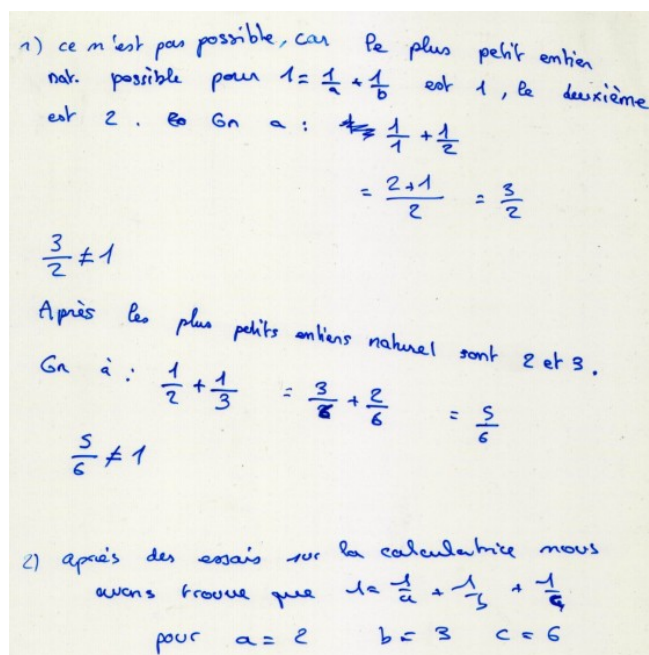 1) ce n'est pas possible, car le plus petit entier
nat. possible pour 1 = 1/a + 1/b est 1, le deuxième
est 2. On a : 1/1 + 1/2
= (2+1)/2 = 3/2
3/2 ≠ 1
Après les plus petits entiers naturel sont 2 et 3.
On à : 1/2 + 1/3 = 3/6 + 2/6 = 5/6
5/6 ≠ 1
2) après des essais sur la calculatrice nous
avons trouve que 1 = 1/a + 1/b + 1/c
pour a = 2 b = 3 c = 6